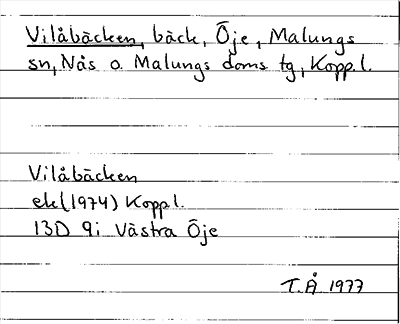 Vilåbäcken, bäck, Öje, Malungs
sn, Nås o. Malungs doms tg, Kopp.l.
Vilåbäcken
ek (1974) Koppl.
13D 9i Västra Öje
T.Å 1977